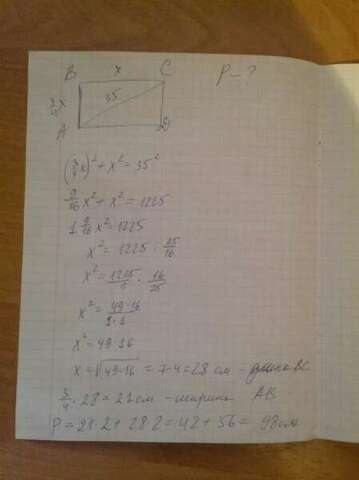 B x C P - ?
3/4 x 35
A D
(3/4 x)² + x² = 35²
9/16 x² + x² = 1225
1 9/16 x² = 1225
x² = 1225 : 25/16
x² = 1225/1 · 16/25
x² = 49·16/1·1
x² = 49·16
x = √49·16 = 7·4 = 28 см - длина BC
3/4 · 28 = 21 см - ширина AB
P = 21·2 + 28·2 = 42 + 56 = 98 см